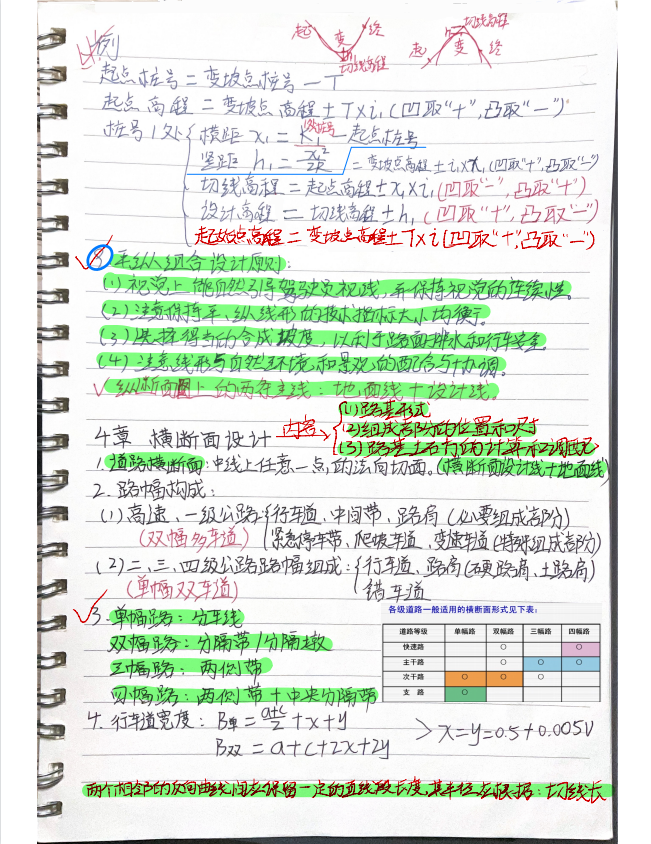 起 变 终 切线高程
切线高程 起 变 终
例
起点桩号＝变坡点桩号－T
起点高程＝变坡点高程±T×i₁(凹取“+”,凸取“－”)
桩号1处{横距x₁＝K₁桩号－起点桩号
竖距h₁＝x²/2R ＝变坡点高程±i₁×x₁(凹取“+”,凸取“－”)
切线高程＝起点高程±x₁×i₁(凹取“－”,凸取“+”)
设计高程＝切线高程±h₁(凹取“+”,凸取“－”)
起始点高程＝变坡点高程±T×i(凹取“+”,凸取“－”)
8 平纵组合设计原则:
(1)视觉上能自然引导驾驶员视线,并保持视觉的连续性。
(2)注意保持平、纵线形的技术指标大小均衡。
(3)选择得当的合成坡度,以利于路面排水和行车安全
(4)注意线形与自然环境和景观的配合与协调。
纵断面图上的两条主线：地面线＋设计线。
(1)路基形式
4章 横断面设计 内容 (2)组成部分的位置和尺寸
(3)路基土石方的计算和调配
1.道路横断面:中线上任意一点的法向切面。(横断面设计线＋地面线)
2.路幅构成：
(1)高速、一级公路:{行车道、中间带、路肩(必要组成部分)
(双幅多车道) 紧急停车带、爬坡车道、变速车道(特殊组成部分)
(2)二、三、四级公路路幅组成:{行车道、路肩(硬路肩、土路肩)
(单幅双车道) 错车道
各级道路一般适用的横断面形式见下表:
3.单幅路：分车线
双幅路：分隔带/分隔墩
三幅路：两侧带
四幅路：两侧带＋中央分隔带
道路等级 单幅路 双幅路 三幅路 四幅路
快速路 ○ ○
主干路 ○ ○ ○
次干路 ○ ○ ○
支 路 ○
4.行车道宽度：B单＝(a+c)/2＋x＋y
B双＝a＋c＋2x＋2y
>x＝y＝0.5＋0.005V
两个相邻的反向曲线间应保留一定的直线段长度,其半径应根据：切线长